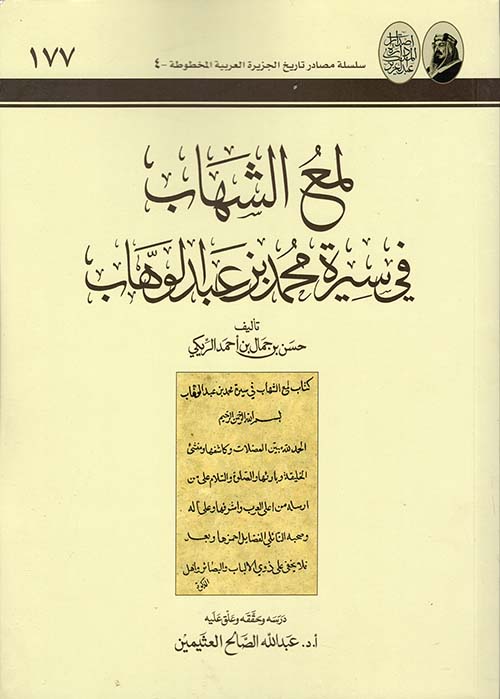 ١٧٧
سلسلة مصادر تاريخ الجزيرة العربية المخطوطة -٤
لمع الشهاب
في سيرة محمد بن عبدالوهاب
تأليف
حسن بن جمال بن أحمد الريكي
كتاب لمع الشهاب في سيرة محمد بن عبد الوهاب
بسم الله الرحمن الرحيم
الحمد لله مبين المعضلات وكاشفها ومنشئ
الخليقة وبارئها والصلوة والسلام على من
ارسله من اعلى العرب واشرفها وعلى آله
وصحبه النائلي الفضايل احمزها وبعد
فلا يخفى على ذوي الالباب والبصائر واهل
دَرَسَه وحَقّقَه وعَلّق عَليه
أ.د. عبدالله الصالح العثيمين